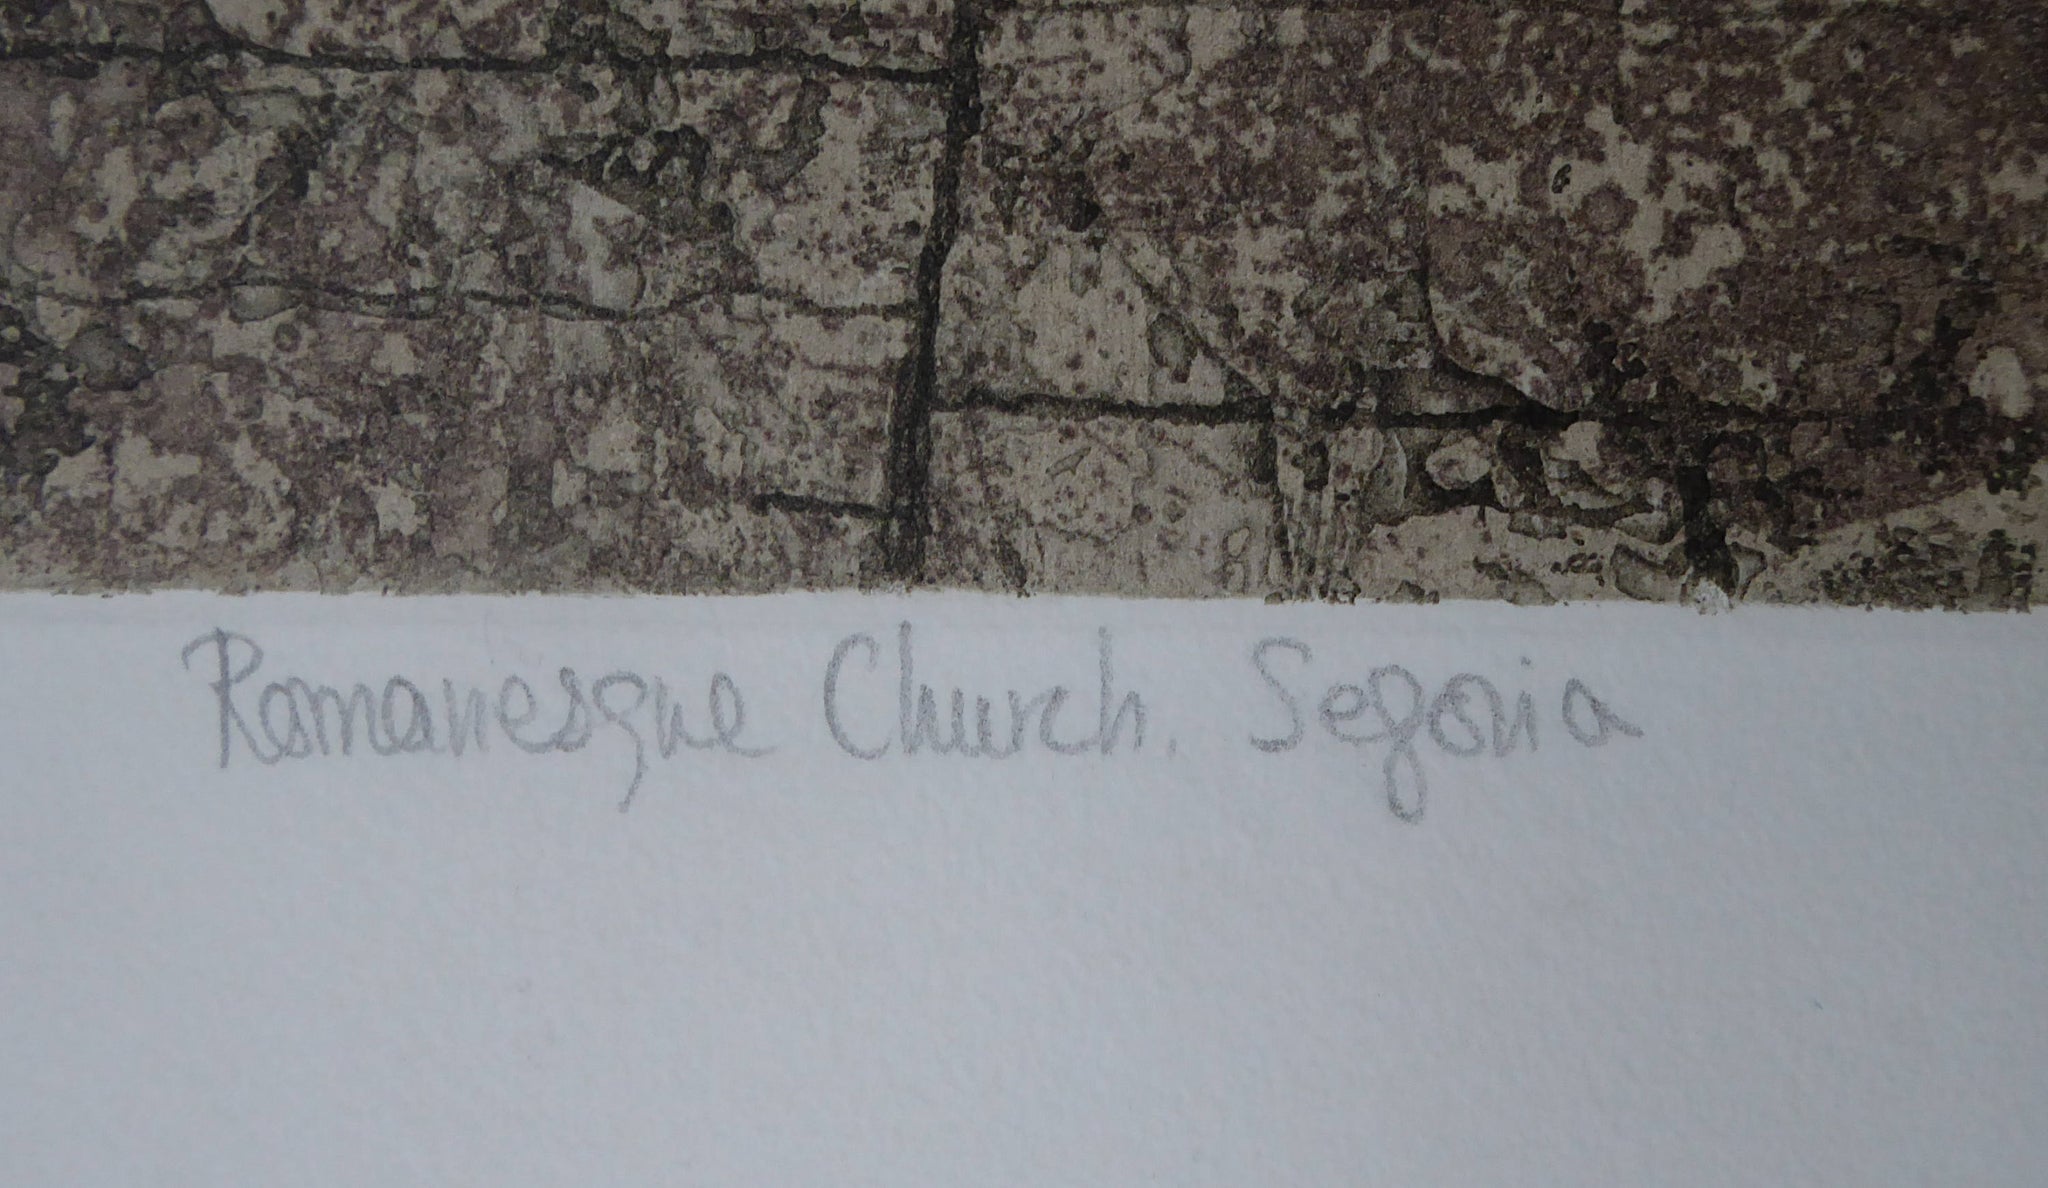 Romanesque Church. Segovia